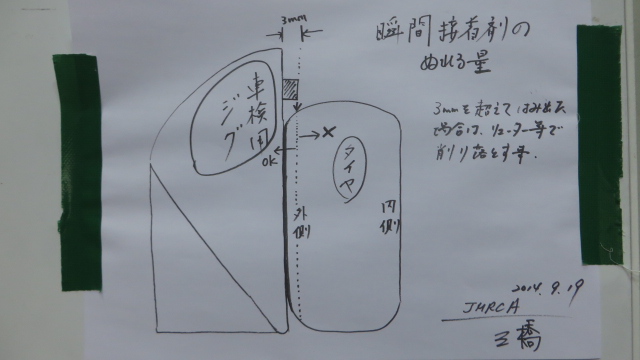 瞬間接着剤の
ぬれる量
3mm
3mmを超えてはみ出た
場合は、リューター等で
削り落とす事.
車検用
ジグ
OK
×
タイヤ
外側
内側
2014.9.19
JMRCA
三橋